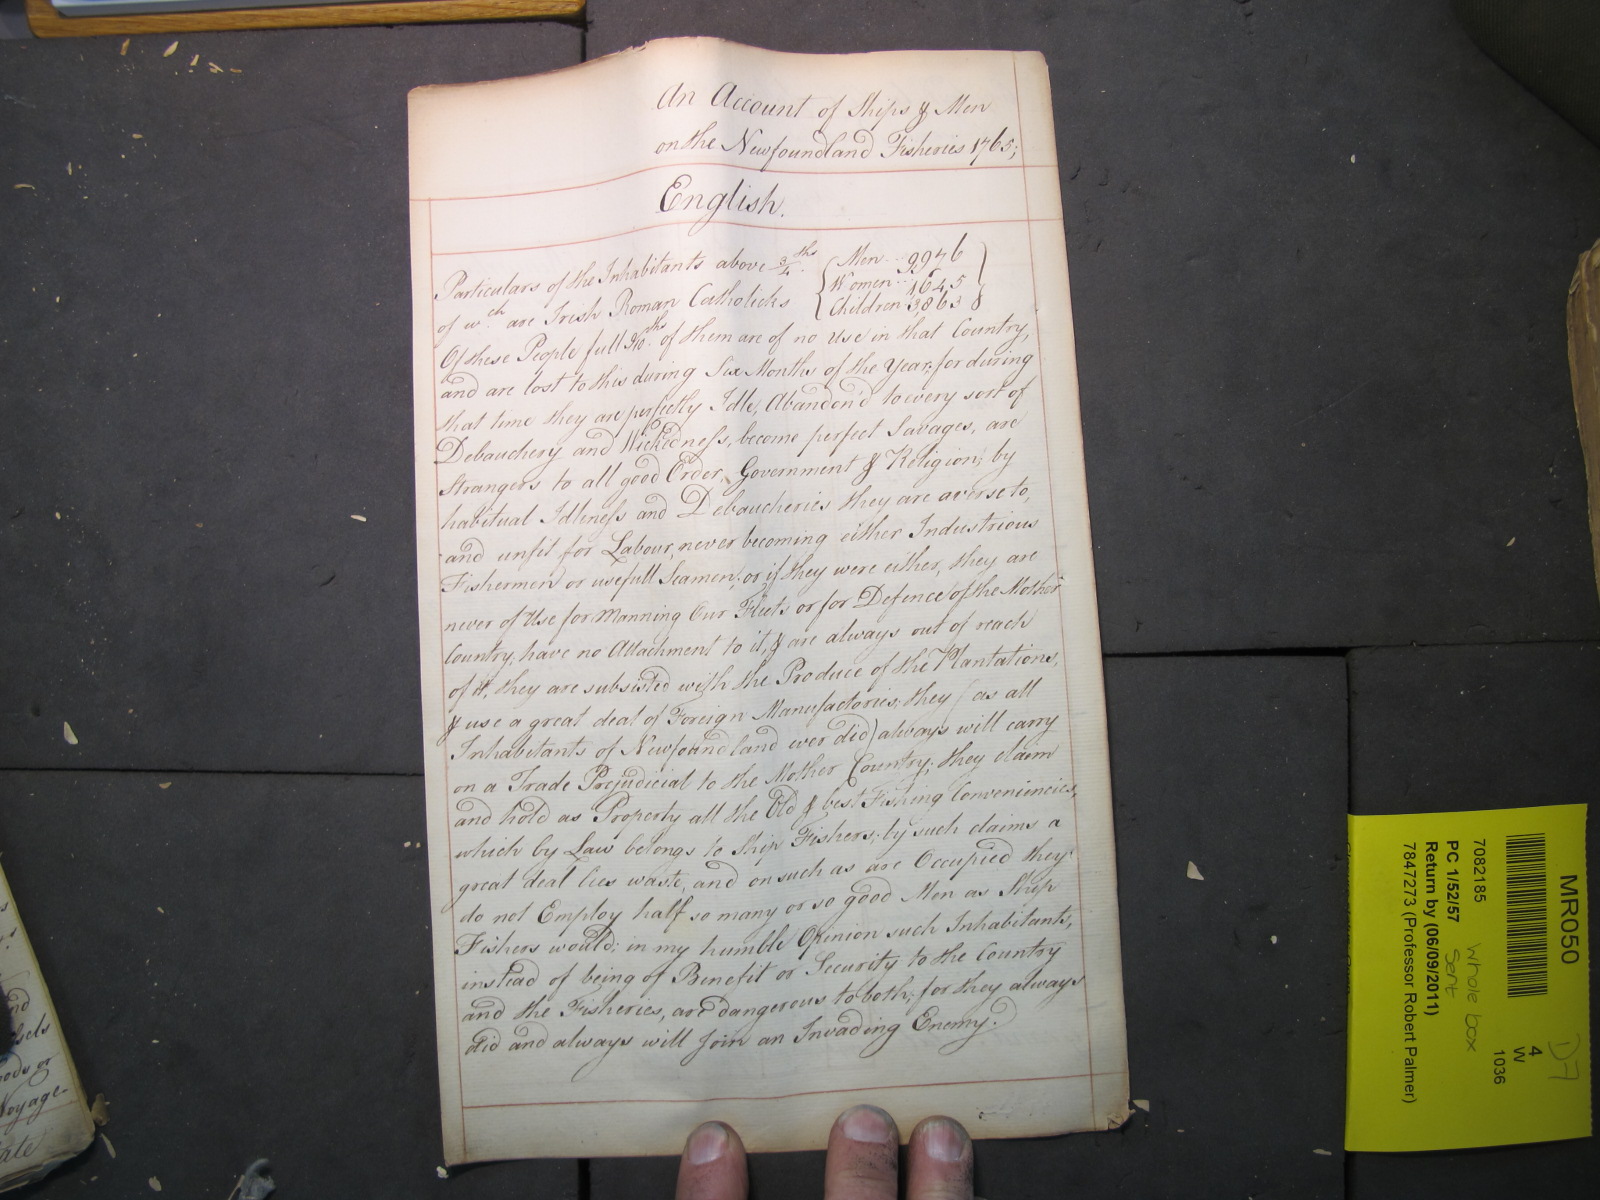 An Account of Ships & Men
on the Newfoundland Fisheries 1765;
English.
Particulars of the Inhabitants above 3/4ths
of wch are Irish Roman Catholicks
Men 9976
Women 1645
Children 3863
Of these People full of them are of no Use in that Country,
and are lost to this during Six Months of the Year; for during
that time they are perfectly Idle, Abandon'd to every sort of
Debauchery and Wickedness, become perfect Savages, are
Strangers to all good Order, Government & Religion; by
habitual Idleness and Debaucheries they are averse to,
and unfit for Labour, never becoming either Industrious
Fishermen or usefull Seamen; or if they were either, they are
never of Use for Manning Our Fleets or for Defence of the Mother
Country, have no Attachment to it, & are always out of reach
of it, they are subsisted with the Produce of the Plantations,
& use a great deal of Foreign Manufactories; they (as all
Inhabitants of Newfoundland ever did) always will carry
on a Trade Prejudicial to the Mother Country; they claim
and hold as Property all the Old & best Fishing Conveniencies,
which by Law belongs to Ship Fishers; by such claims a
great deal lies waste, and on such as are Occupied they
do not Employ half so many or so good Men as Ship
Fishers would; in my humble Opinion such Inhabitants,
instead of being of Benefit or Security to the Country
and the Fisheries, are dangerous to both; for they always
did and always will join an Invading Enemy.
MR050
7082185
PC 1/52/57
Return by (06/09/2011)
7847273 (Professor Robert Palmer)
4
W
1036
whole box
sent
D7
and
oods or
Voyage